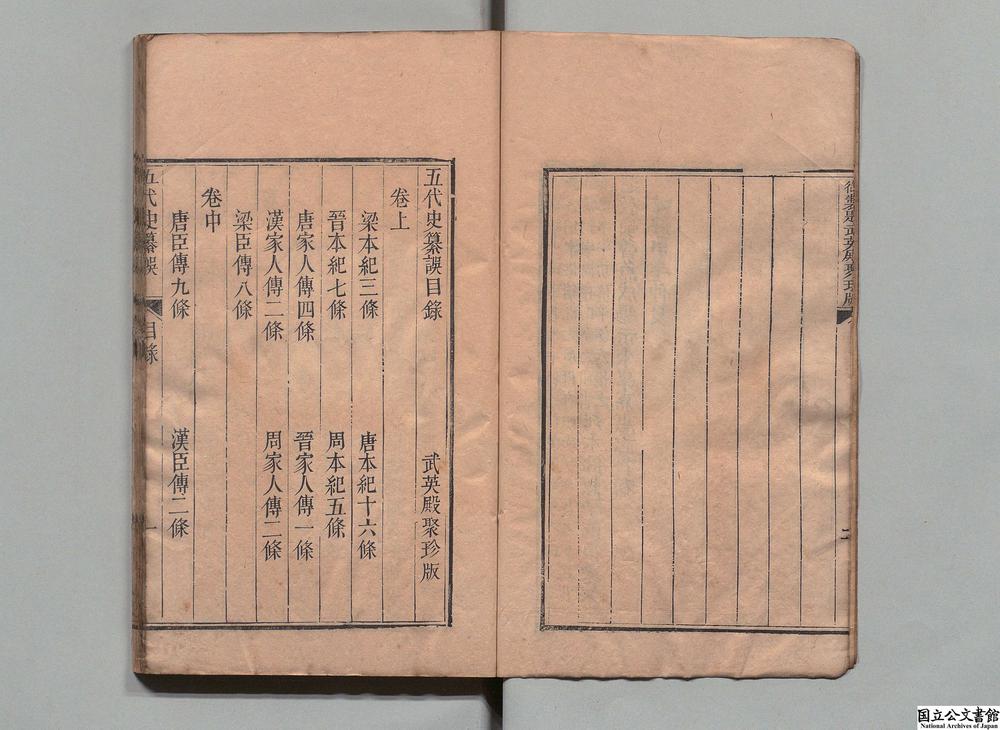 御製題武英殿聚珍版
二
五代史纂誤目錄 武英殿聚珍版
卷上
梁本紀三條 唐本紀十六條
晉本紀七條 周本紀五條
唐家人傳四條 晉家人傳一條
漢家人傳二條 周家人傳二條
梁臣傳八條
卷中
唐臣傳九條 漢臣傳二條
五代史纂誤 目錄 一
国立公文書館
National Archives of Japan